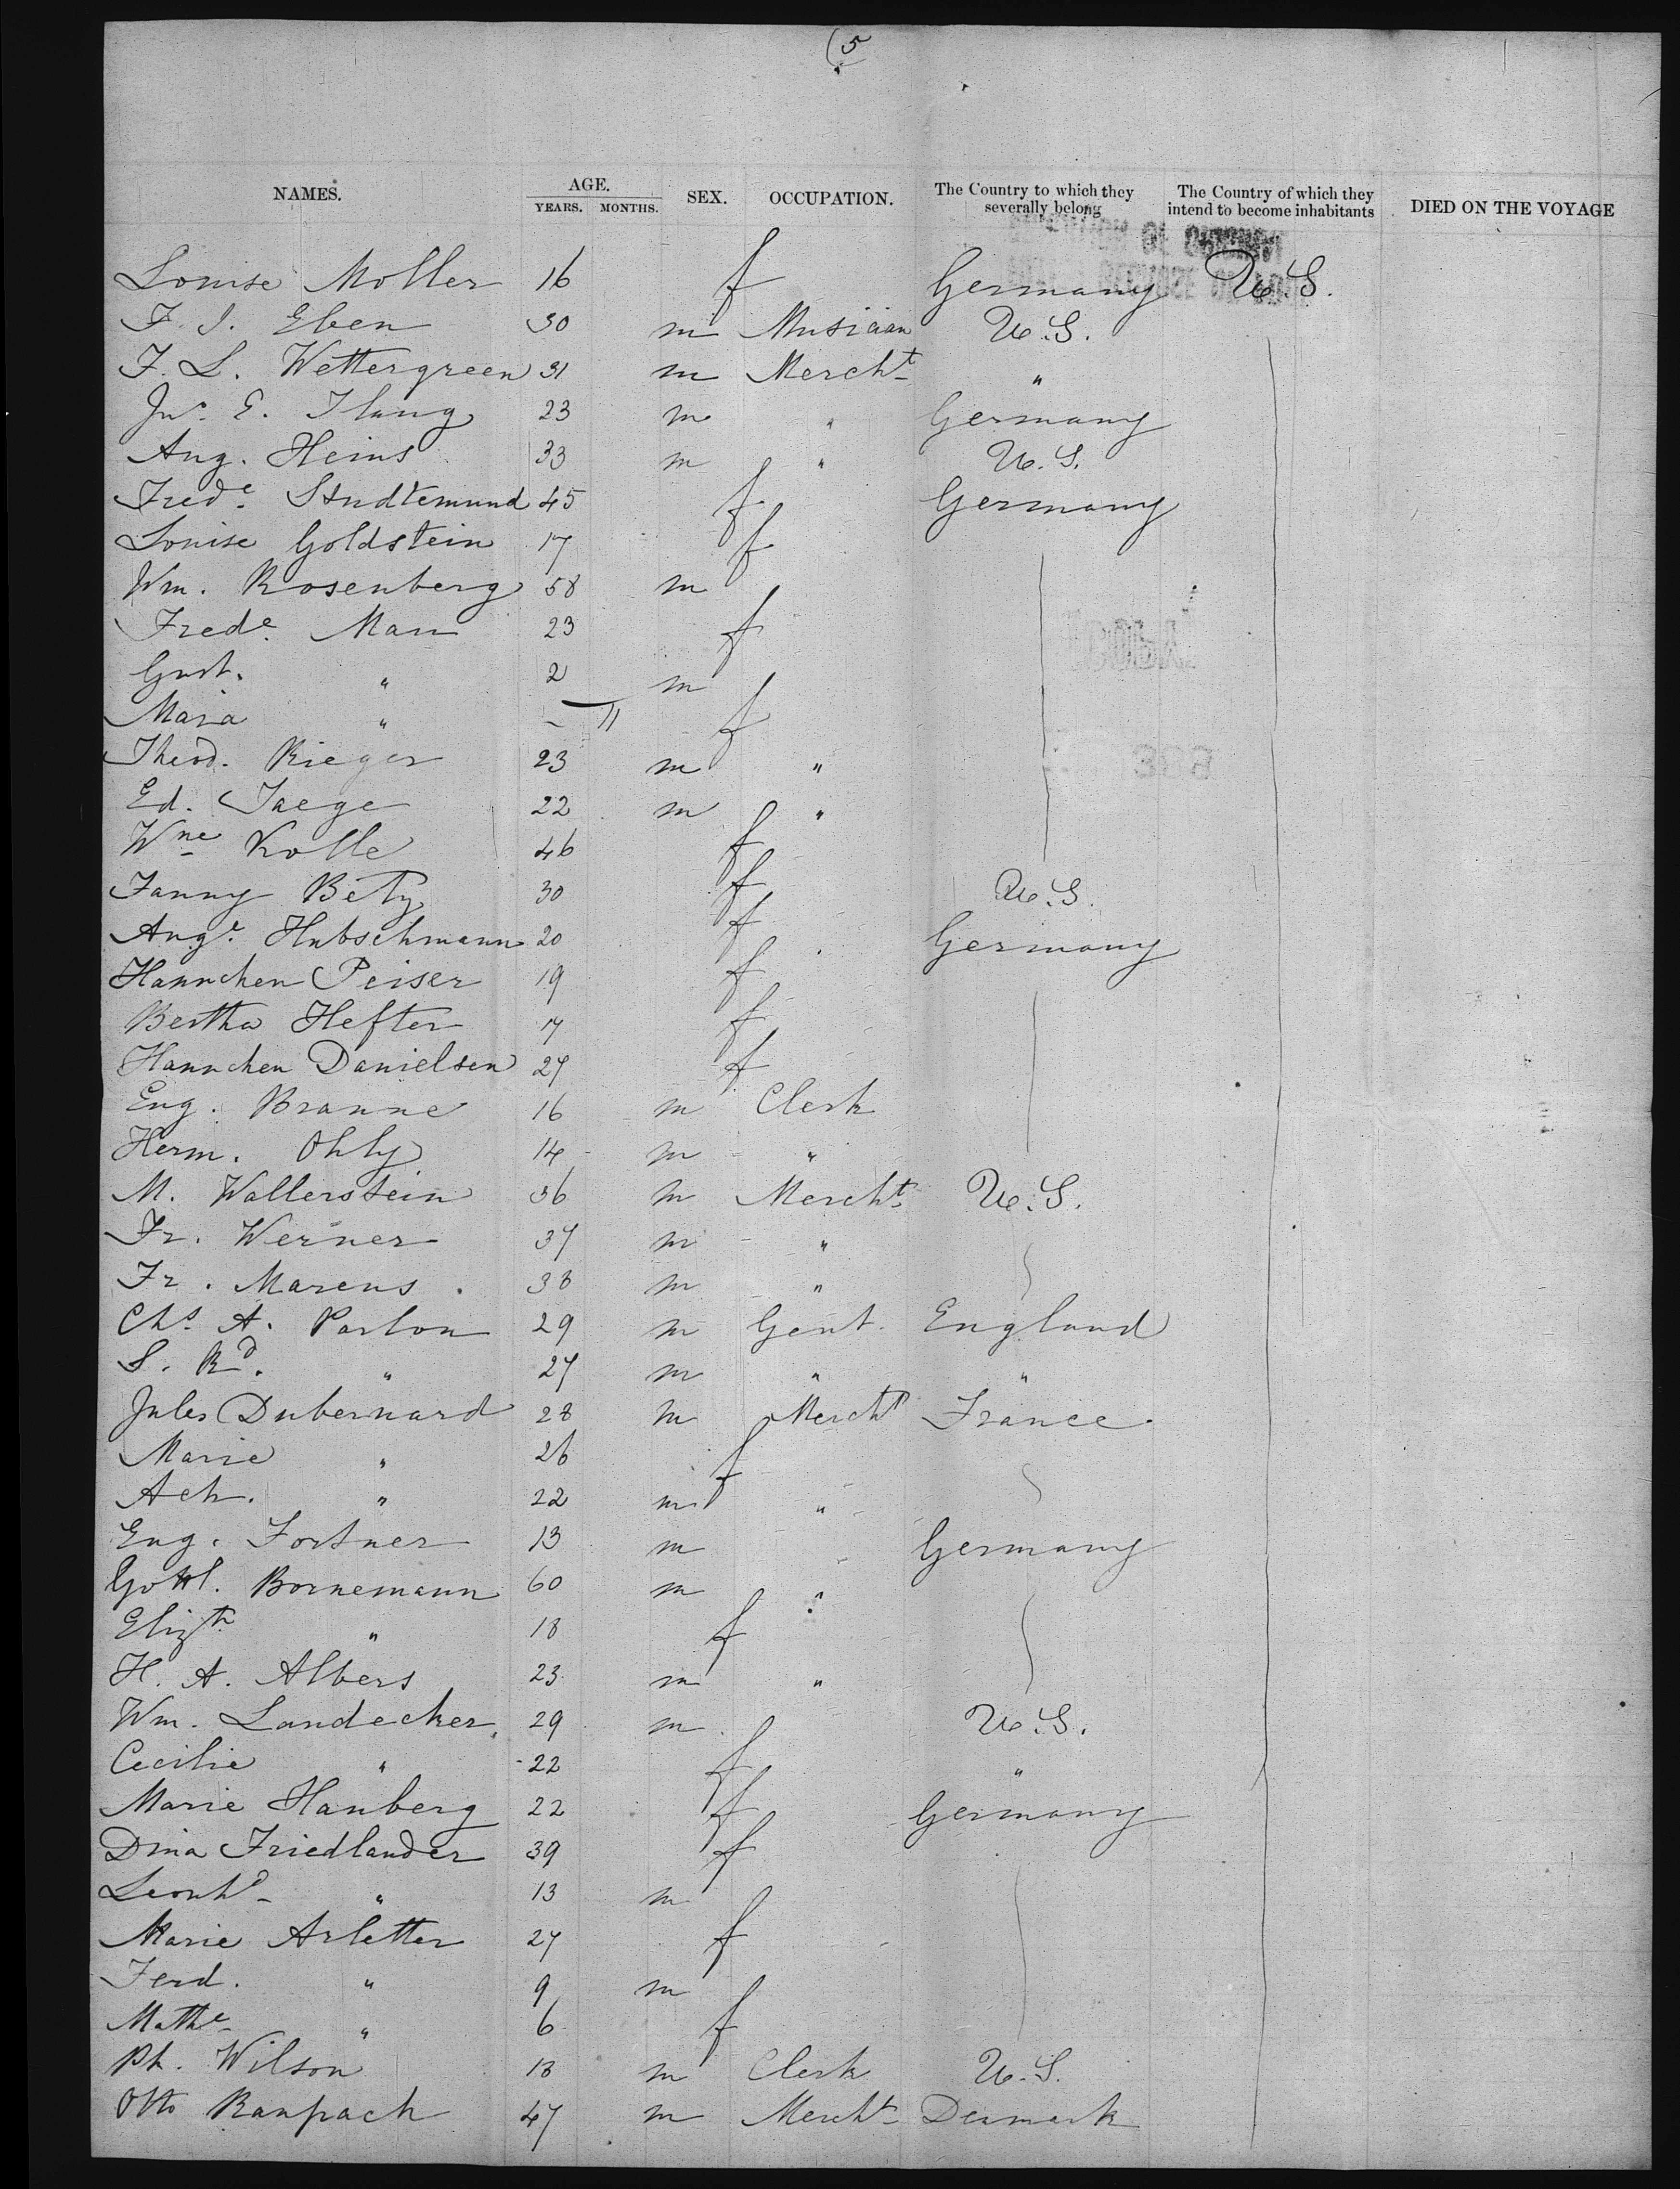 (5
NAMES. AGE. YEARS. MONTHS. SEX. OCCUPATION. The Country to which they severally belong The Country of which they intend to become inhabitants DIED ON THE VOYAGE
Louise Moller 16 f Germany U.S.
F. J. Eben 30 m Musician U.S.
F. L. Wettergreen 31 m Mercht "
Jno. E. Ilang 23 m " Germany
Aug. Heins 33 m " U.S.
Frede Studtemund 45 f Germany
Louise Goldstein 17 f
Wm. Rosenberg 58 m
Frede Man 23 f
Gust. " 2 m
Maria " – 11 f
Theod. Rieger 23 m "
Ed. Jaege 22 m "
Wne Kolle 46 f
Fanny Bety 30 f U.S.
Auge Hubschmann 20 f Germany
Hannchen Peiser 19 f
Bertha Hefter 17 f
Hannchen Danielsen 27 f
Eug. Branne 16 m Clerk
Herm. Ohly 14 m "
M. Wallerstein 36 m Mercht U.S.
Fr. Werner 37 m "
Fr. Marcus 38 m "
Chs. A. Parlon 29 m Gent. England
S. Rd. " 27 m " "
Jules Dubernard 28 m Mercht France
Marie " 26 f
Ach. " 22 m "
Eug. Fortner 13 m Germany
Gottl. Bornemann 60 m "
Elizth " 18 f
H. A. Albers 23 m "
Wm. Landecker 29 m U.S.
Cecilie " 22 f "
Marie Hanberg 22 f Germany
Dina Friedlander 39 f
Leonhd " 13 m
Marie Arletter 27 f
Ferd. " 9 m
Mathe " 6 f
Ph. Wilson 18 m Clerk U.S.
Otto Ranpach 47 m Mercht Denmark